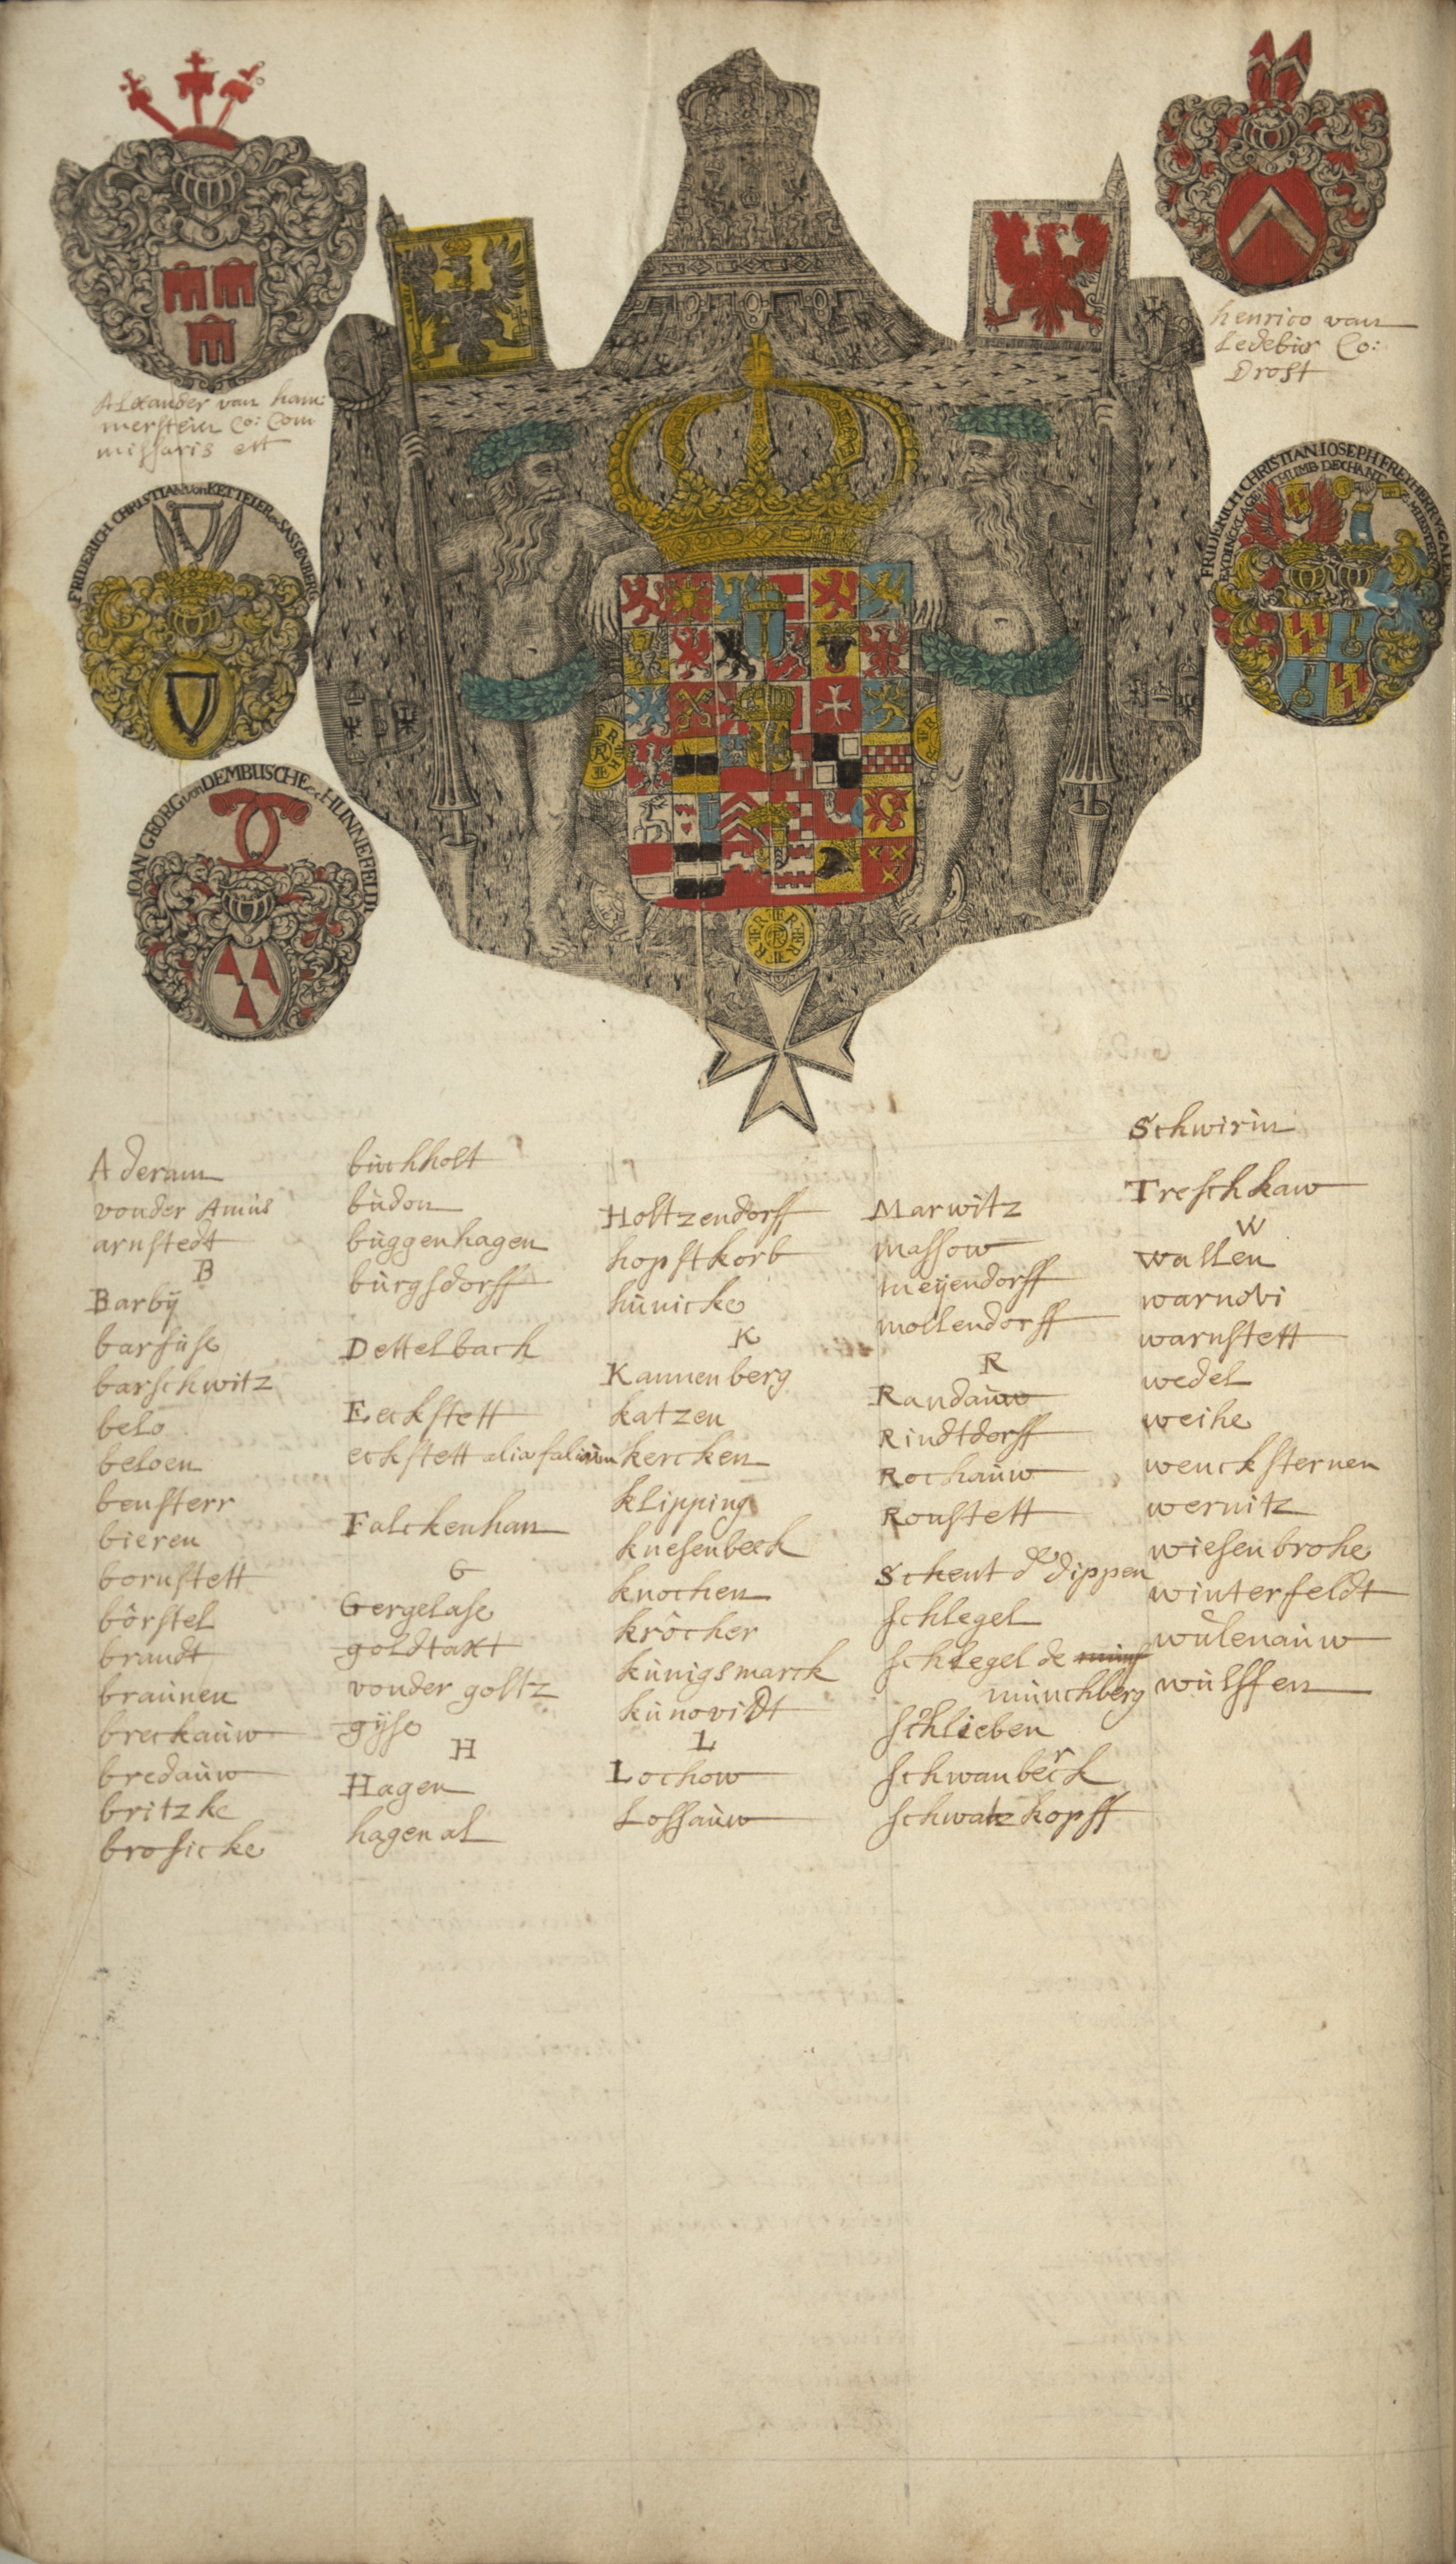 Alexander van ham:
merstein Co: Com
missaris ett
FRIDERICH CHRISTIAN von KETTELER zu SASSENBERG
IOAN GEORG von DEMBUSCHE zu HUNNEFELDT
henrico van
Ledebur Co:
Drost
FRIDERICH CHRISTIAN IOSEPH FREYHERR V. GALEN
THUMB DECHANT Z. MUNSTER
Aderam
vonder Amus
arnstedt
B
Barbÿ
barfuse
barschwitz
belo
beloen
bensterr
bieren
bornstett
börstel
brandt
braunen
breckauw
bredauw
britzke
brosicke
buchholt
budon
buggenhagen
burgsdorff
Dettelbach
Eeckstett
eckstett alia
Falckenhan
G
Gergelase
goldtakt
vonder goltz
gÿse
H
Hagen
hagen al
Holtzendorff
hopstkorb
hunicke
K
Kannenberg
katzen
kercken
klipping
knesenbeck
knochen
kröcher
kunigsmarck
kunovidt
L
Lochow
Lossauw
Marwitz
massow
meÿendorff
mollendorff
R
Randauw
Rindtdorff
Rochauw
Ronstett
Schent de dippen
schlegel
schlegel de
munchberg
schlieben
schwanberck
schwatzkopff
Schwirin
Treschkaw
W
wallen
warnovi
warnstett
wedel
weihe
wencksternen
wernitz
wiesenbrohe
winterfeldt
wulenauw
wulffen